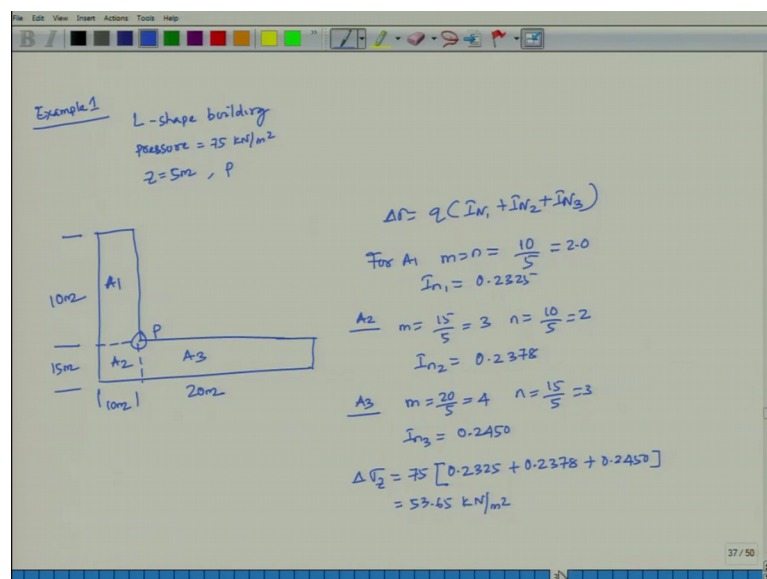 File Edit View Insert Actions Tools Help
B I
Example 1
L-shape building
pressure = 75 kN/m²
Z = 5m , P
10m
15m
A1
P
A2
A3
10m
20m
Δσ = q(IN₁ + IN₂ + IN₃)
For A1 m = n = 10/5 = 2.0
In₁ = 0.2325
A2 m = 15/5 = 3 n = 10/5 = 2
In₂ = 0.2378
A3 m = 20/5 = 4 n = 15/5 = 3
In₃ = 0.2450
Δσz = 75 [0.2325 + 0.2378 + 0.2450]
= 53.65 kN/m²
37 / 50